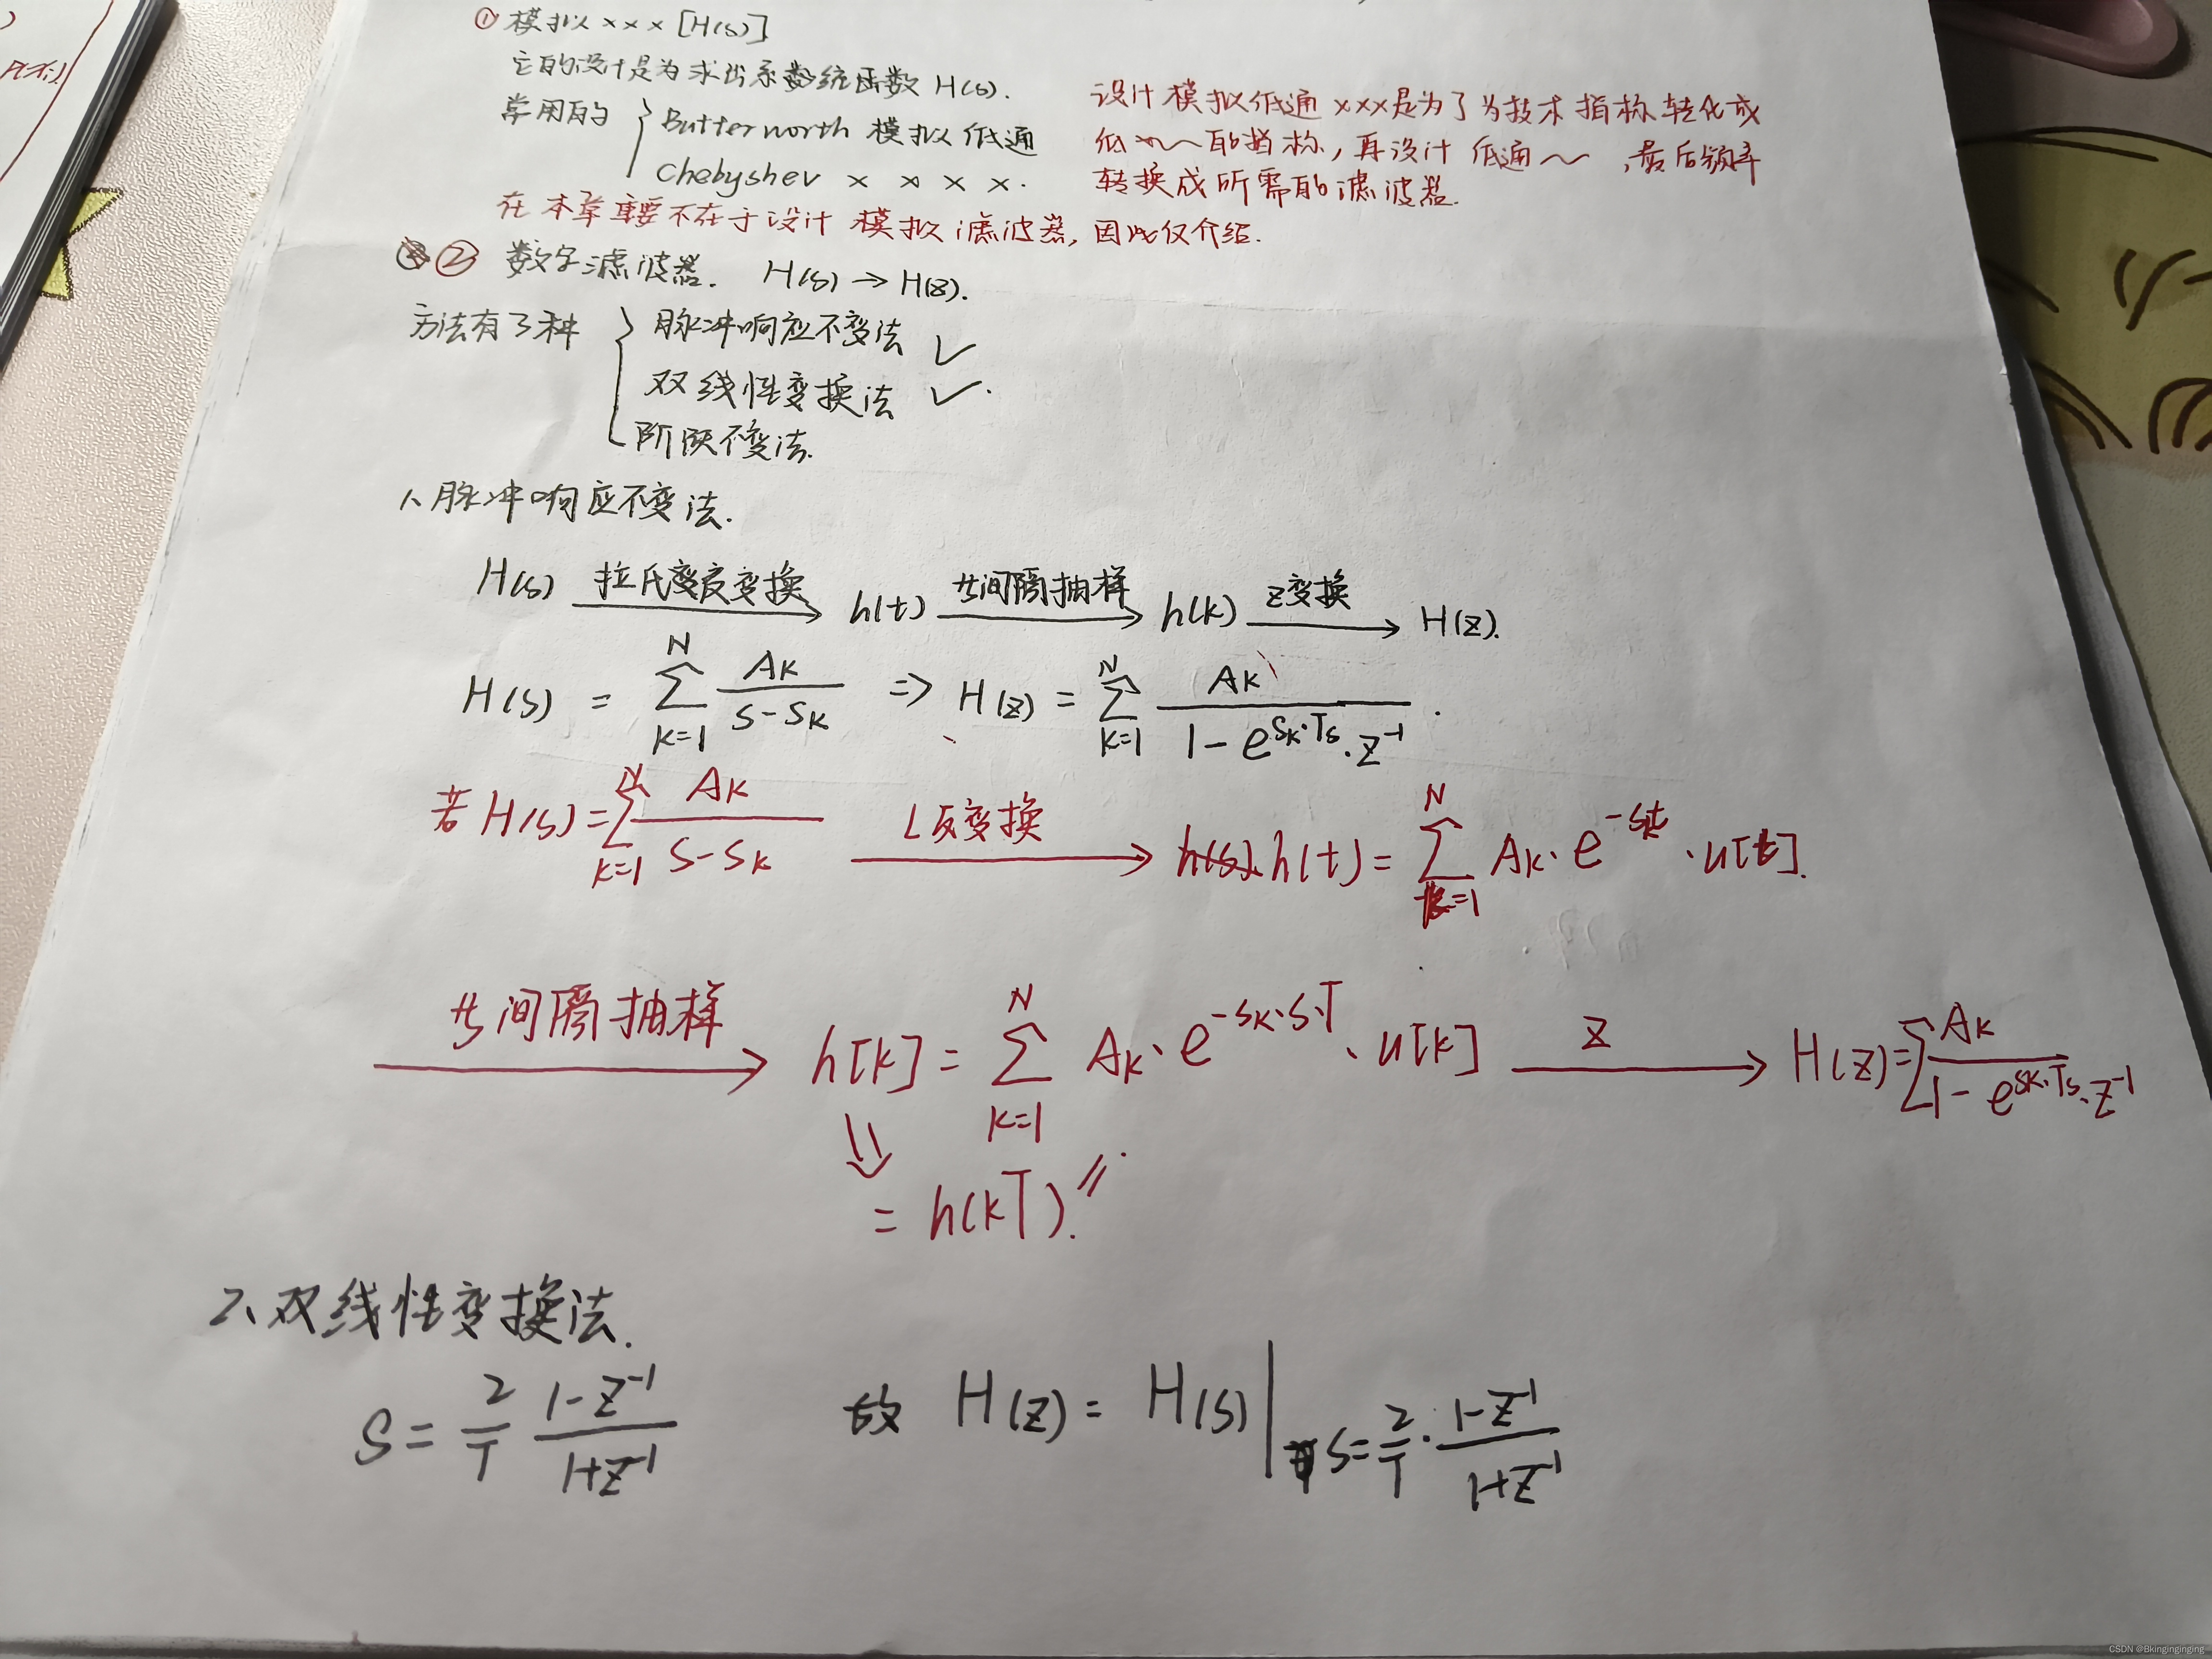 ① 模拟×××[H(s)]
它的设计是为求出系数统函数 H(s).
常用的 { Butterworth 模拟低通
Chebyshev × × × ×.
设计模拟低通×××是为了为技术指标转化成
低～～的指标,再设计低通～～,最后频率
转换成所需的滤波器.
在本章重要不在于设计模拟滤波器,因此仅介绍.
② 数字滤波器. H(s) → H(z).
方法有3种 { 脉冲响应不变法 ✓
双线性变换法 ✓.
阶跃不变法.
1、脉冲响应不变法.
H(s) 拉氏变反变换 → h(t) 等间隔抽样 → h(k) z变换 → H(z).
H(s) = ∑_{k=1}^{N} Ak/(s-sk) => H(z) = ∑_{k=1}^{N} Ak/(1-e^{sk·Ts}·z^{-1}).
若 H(s)=∑_{k=1}^{N} Ak/(s-sk) L反变换 → h(s). h(t)=∑_{k=1}^{N} Ak·e^{-skt}·u[t].
等间隔抽样 → h[k]=∑_{k=1}^{N} Ak·e^{-sk·s·T}·u[k] z → H(z)=∑ Ak/(1-e^{sk·Ts}·z^{-1})
⇓
= h(kT).
2、双线性变换法.
S = 2/T (1-z^{-1})/(1+z^{-1}) 故 H(z)= H(s)|_{s=2/T·(1-z^{-1})/(1+z^{-1})}
CSDN @Bkinginginging